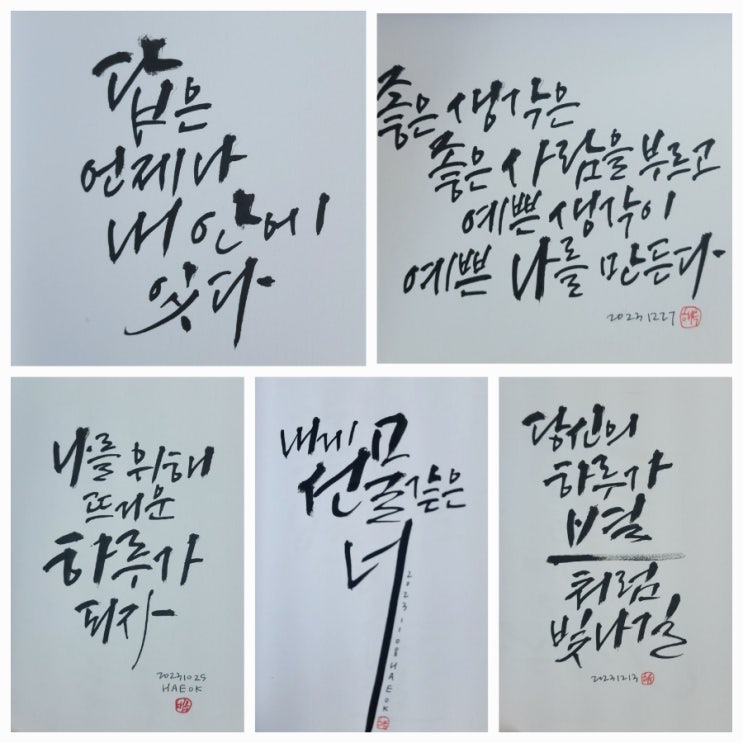 답은
언제나
내 안에
있다
좋은 생각은
좋은 사람을 부르고
예쁜 생각이
예쁜 나를 만든다
20231227
나를 위해
뜨거운
하루가
되자
20231025
HAEOK
내게
선물같은
너
20231108 HAEOK
당신의
하루가
별
처럼
빛나길
20231213